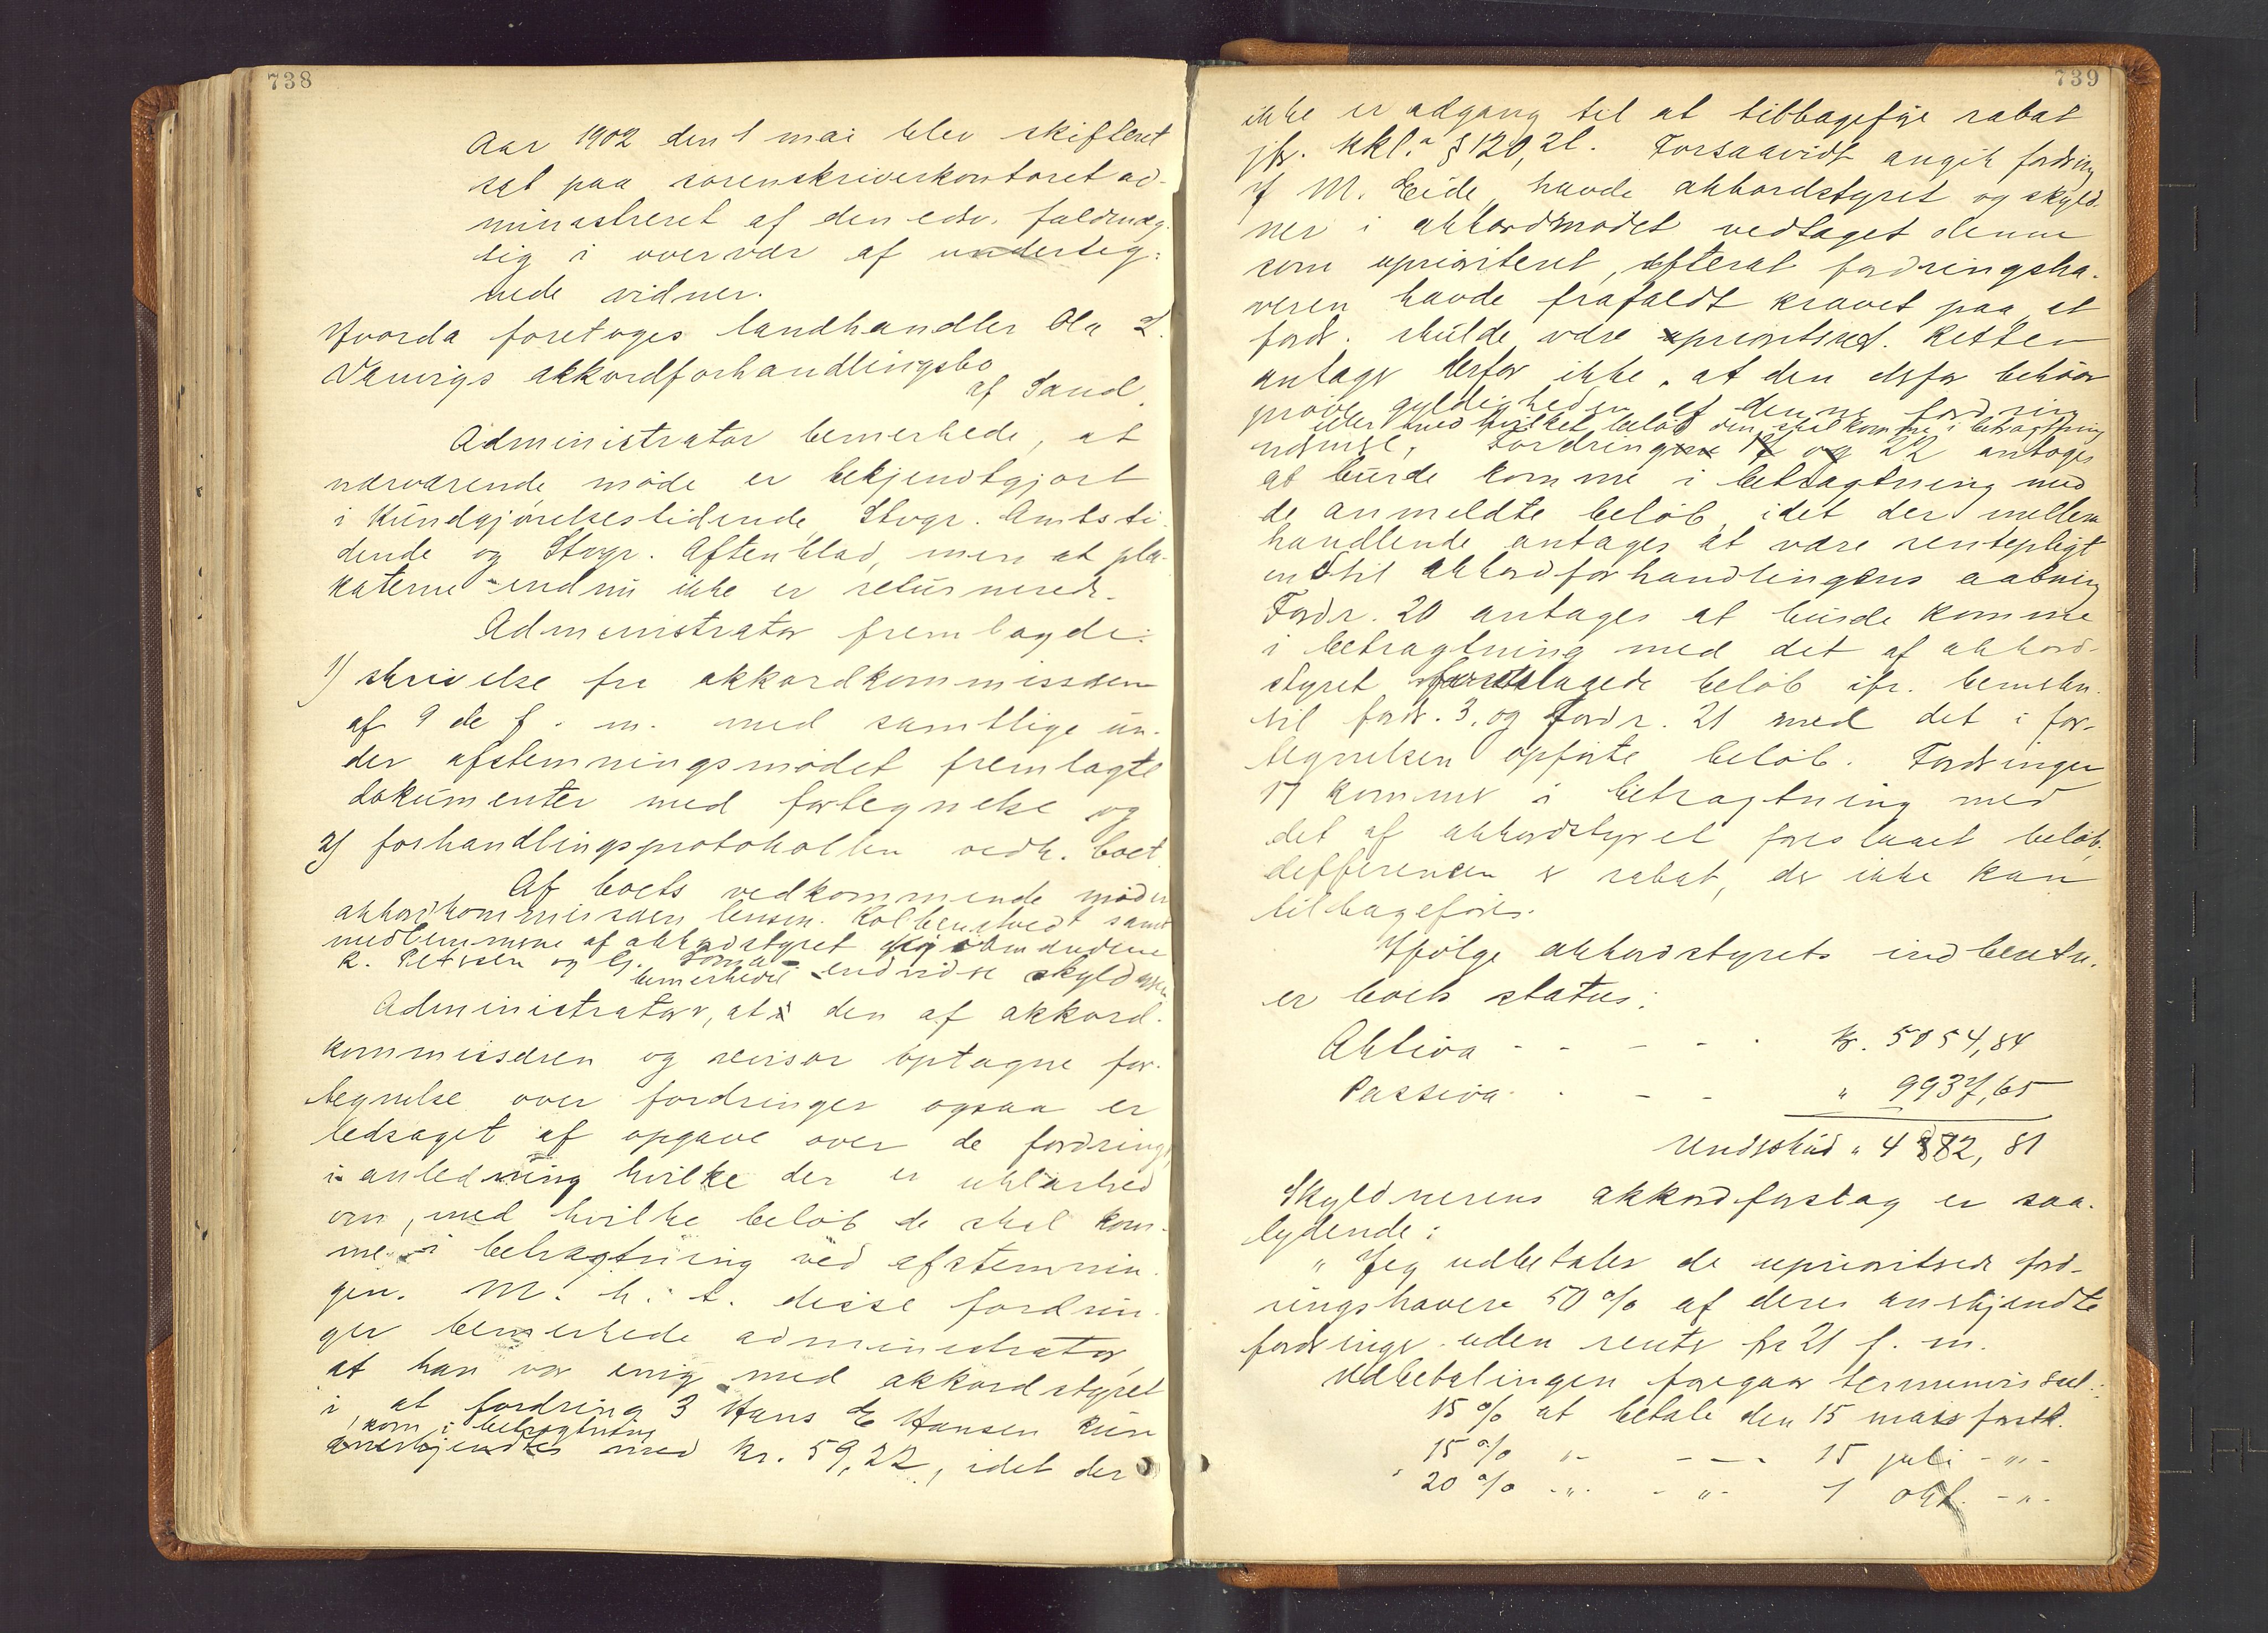 738
Aar 1902 den 1 mai blev skifteret
sat paa sorenskriverkontoret ad-
ministreret af den edsv. fuldmæg-
tig i overvær af underteg-
nede vidner.
Hvorda foretoges landhandler Ola
akkordforhandlingsbo
af Sand.
Administrator bemerkede, at
nærværende møde er bekjendtgjort
i Kundgjørelsestidende, Stvgr. Amtsti-
dende og Stvgr. Aftenblad, men at pla-
katerne endnu ikke er returnered.
Administrator fremlagde:
1) skrivelse fra akkordkommissæren
af 9 de f. m. med samtlige un-
der afstemningsmødet fremlagte
dokumenter med fortegnelse og
2) forhandlingsprotokollen vedk. boet.
Af boets vedkommende møder
akkordkommissæren lensm. samt
medlemmerne af akkordstyret
R. Petersen og G. endvidre skyldneren
bemerkede
Administrator, at den af akkord-
kommissæren og revisor optagne for-
tegnelse over fordringer ogsaa er
ledsaget af opgave over de fordring,
i anledning hvilke der er uklarhed
om, med hvilke beløb de skal kom-
me i betragtning ved afstemnin-
gen. M. h. t. disse fordrin-
ger bemerkede administrator,
at han var enig med akkordstyret
i at fordring 3 Hans E Hansen kun
kom i betragtning
anerkjendtes med kr. 59,22, idet der
739
ikke er adgang til at tilbageføje rabat
jfr. kkl. § 120, 2l. Forsaavidt angik fordring
M. Eide, havde akkordstyret og skyld-
ner i akkordmødet vedtaget denne
som uprioriteret, efterat fordringsha-
veren havde frafaldt kravet paa, at
fordr. skulde være prioriteret. Retten
antager derfor ikke, at den derfor behøver
prøve gyldigheden af denne fordring
eller med hvilket beløb den skal komme i betragtning
Fordringene 17 og 22 antoges
at burde komme i betragtning med
de anmeldte beløb, idet der mellem
handlende antages at være rentepligt
indtil akkordforhandlingens aabning
Fordr. 20 antages at burde komme
i betragtning med det af akkord-
styret beløb jfr. bemerkn.
til fordr. 3, og fordr. 21 med det i for-
tegnelsen opførte beløb. Fordringen
17 kommer i betragtning med
det af akkordstyret foreslaaet beløb,
defferencen er rabat, der ikke kan
tilbageføres.
Ifølge akkordstyrets indberetn.
er boets status:
Aktiva - - - - - kr. 5054,84
Passiva - - - - " 9937,65
Underskud " 4882,81
Skyldnerens akkordforslag er saa-
lydende:
" Jeg udbetaler de uprioriterede ford-
ringshavere 50 % af deres anerkjendte
fordringer uden rente fra 21 f. m.
Udbetalingen foregaar terminvis saal.:
15 % at betale den 15 mai førstk.
15 % " - - - 15 juli - " -
20 % - " - - " - 1 okt. - " -